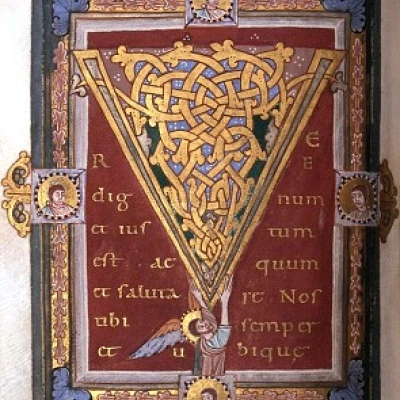 V E
R E
dig num
et ius tum
est. ae quum
et saluta re. Nos
tibi semper
et u biquę